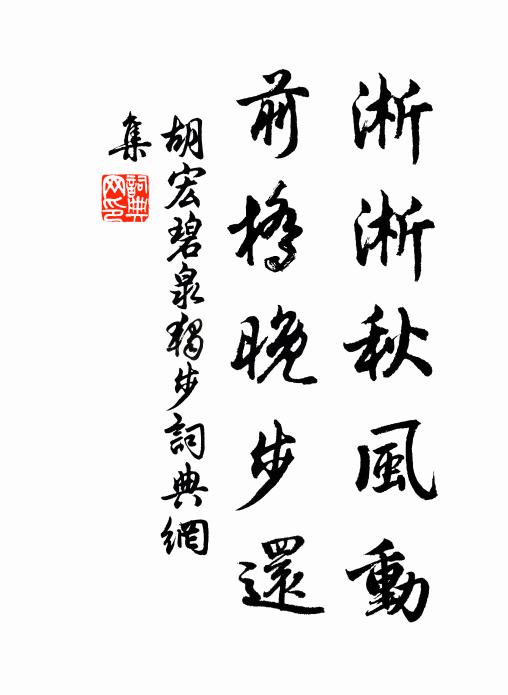 淅淅秋風動
前橋晚步還
胡宏碧泉獨步詞典網
集
詞典
网印